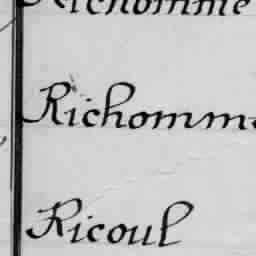 Richomme
Richomme
Ricoul